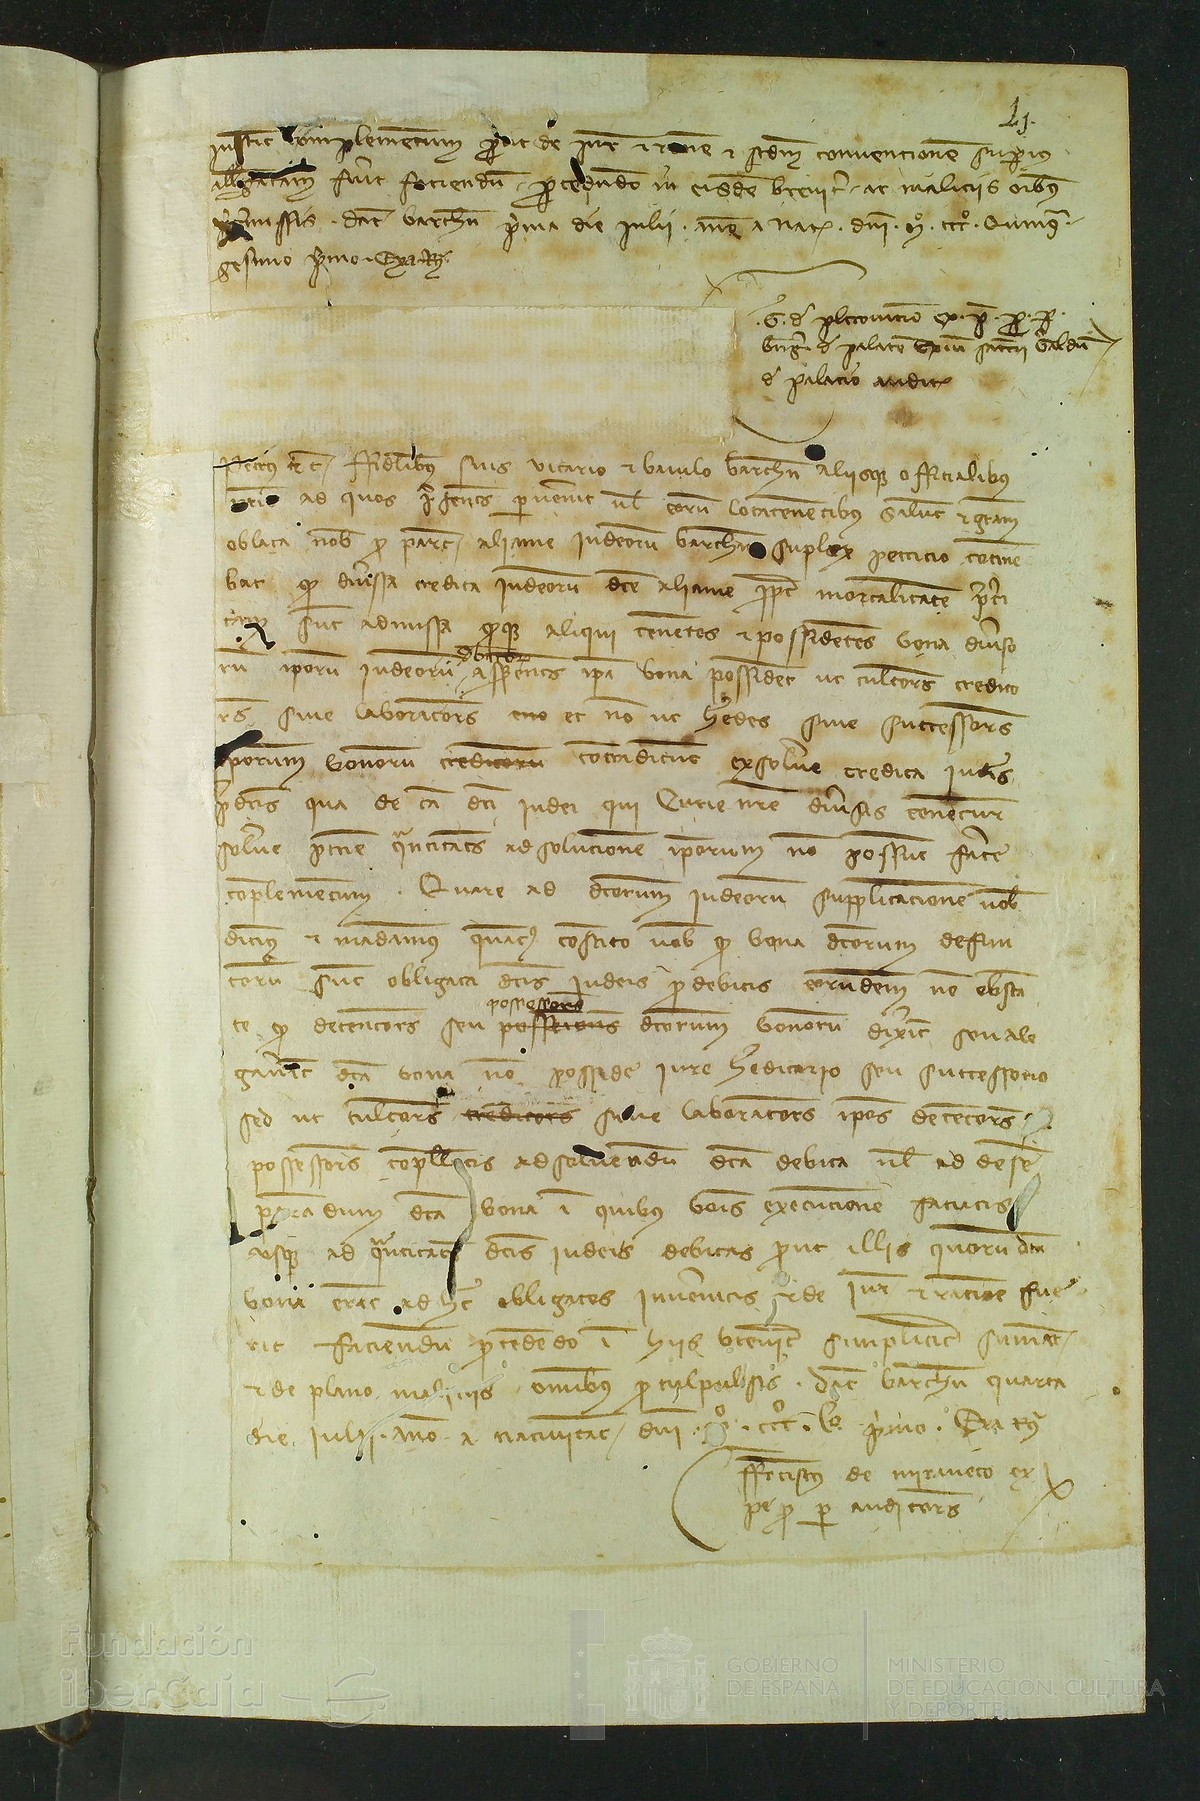 Lj.
justic complementum prout de jure et racione et secundum convencionem superius
allegatam fuerit faciendum procedendo in eisdem breviter ac maliciis omnibus
pretermissis . dat barchn prima die julii . anno a nat . dni . Mº . cccº . Quinqua
gesimo primo . Exa. Rg.
. G. de
de palacio audit
Petrus etc fidelibus suis vicario et baiulo barchn aliisque officialibus
nris ad quos presentes pervenerint vel eorum locatenentibus Salutem et gram
oblata nob pro parte aliame judeorum barchn suplex peticio contine
bat quod diversa credita judeorum dce aliame propter mortalitatem preteri
tam sunt admissa quodque aliqui tenentes et possidentes bona diverso
rum ipsorum judeorum debitor asserentes ipsa bona possident ut cultores credito
res sive laboratores eno et non ut heredes sive successores
ipsorum bonorum creditorum contradicunt exsolvere credita judeis
predictis qua de causa dicti judei qui Curie nre diversis tenentur
solvere pecunie quantitates ad solucionem ipsorum non possunt facere
complementum . Quare ad dictorum judeorum supplicacionem vob
dicimus et mandamus quatenus constito vob quod bona dictorum defun
torum sunt obligata dictis judeis pro debitis eorundem non obstan
te quod detentores seu possessores possessiones dictorum bonorum dixerint seu ale
gaverint dicta bona non possidere jure hereditario seu successorio
sed ut cultores creditores sive laboratores ipsos detentores
possessores compellatis ad solvendum dicta debita vel ad desem
parandum dicta bona in quibus bonis execucionem faciatis
usque ad quantitates dictis judeis debitas prout illis quorum dicta
bona erant ad hec obligatos inveneritis et de jure et racione fue
rit faciendum procedendo in hiis breviter simpliciter sumarie
et de plano maliciis omnibus proculpulsis . dat barchn quarta
die julii . anno a nativitate dni . Mº . cccº . Lº . primo . Exa Rg
ffrancischus de miraveto ex
pe pro per auditores
Fundación
iberCaja
GOBIERNO
DE ESPAÑA
MINISTERIO
DE EDUCACIÓN, CULTURA
Y DEPORTE